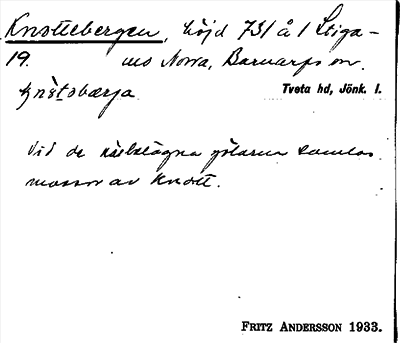 Knottebergen, höjd 731 å 1 Stiga-
19. mo Norra, Barnarps sn.
Tveta hd, Jönk. l.
Vid de närbelägna götarna samlas
massor av knott.
FRITZ ANDERSSON 1933.